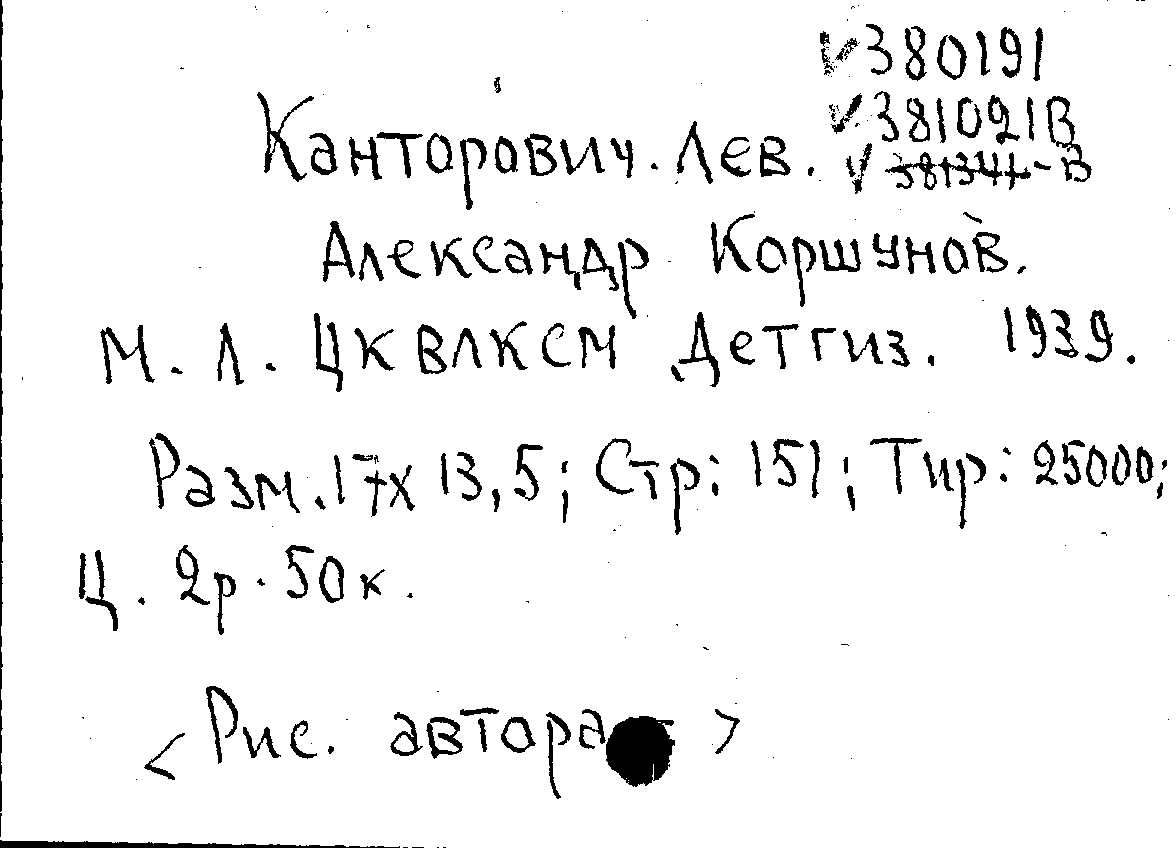 ✓380191
✓381021В
Канторович. Лев. ✓ 381341-В
Александр Коршунов.
М. Л. ЦК ВЛКСМ Детгиз. 1939.
Разм. 17х13,5; Стр: 151; Тир: 25000;
Ц. 2р. 50к.
<Рис. автора>